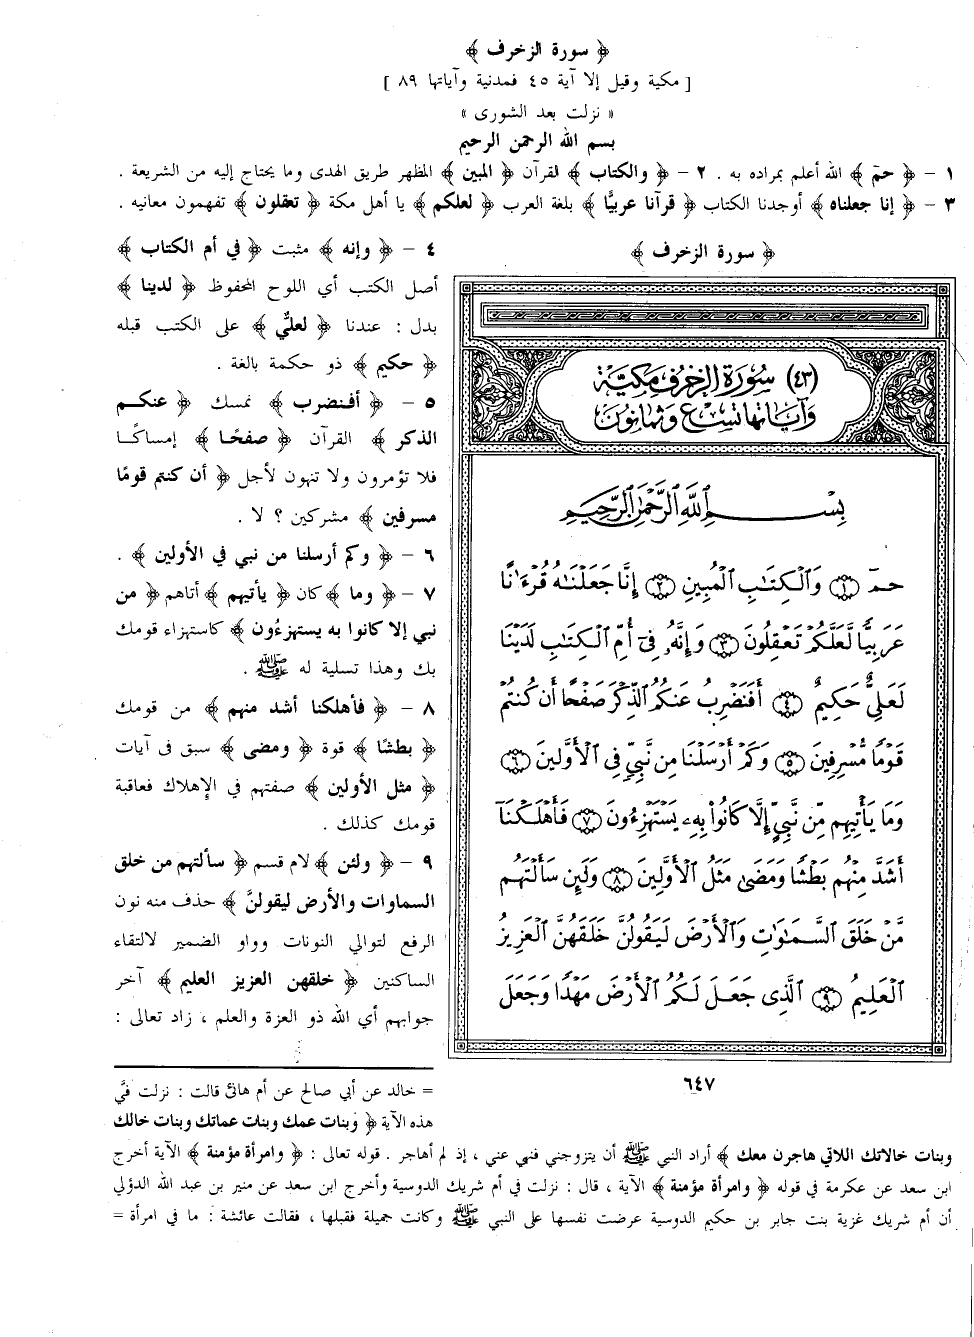 ﴿ سورة الزخرف ﴾
[ مكية وقيل إلا آية ٤٥ فمدنية وآياتها ٨٩ ]
« نزلت بعد الشورى »
بسم الله الرحمن الرحيم
١ – ﴿ حمٓ ﴾ الله أعلم بمراده به . ٢ – ﴿ والكتاب ﴾ القرآن ﴿ المبين ﴾ المظهر طريق الهدى وما يحتاج إليه من الشريعة .
٣ – ﴿ إنا جعلناه ﴾ أوجدنا الكتاب ﴿ قرآنا عربيًّا ﴾ بلغة العرب ﴿ لعلكم ﴾ يا أهل مكة ﴿ تعقلون ﴾ تفهمون معانيه .
﴿ سورة الزخرف ﴾
(٤٣) سورة الزخرف مكية
وآياتها تسع وثمانون
بِسْمِ ٱللَّهِ ٱلرَّحْمَٰنِ ٱلرَّحِيمِ
حمٓ ﴿١﴾ وَٱلْكِتَٰبِ ٱلْمُبِينِ ﴿٢﴾ إِنَّا جَعَلْنَٰهُ قُرْءَٰنًا
عَرَبِيًّا لَّعَلَّكُمْ تَعْقِلُونَ ﴿٣﴾ وَإِنَّهُۥ فِىٓ أُمِّ ٱلْكِتَٰبِ لَدَيْنَا
لَعَلِىٌّ حَكِيمٌ ﴿٤﴾ أَفَنَضْرِبُ عَنكُمُ ٱلذِّكْرَ صَفْحًا أَن كُنتُمْ
قَوْمًا مُّسْرِفِينَ ﴿٥﴾ وَكَمْ أَرْسَلْنَا مِن نَّبِىٍّ فِى ٱلْأَوَّلِينَ ﴿٦﴾
وَمَا يَأْتِيهِم مِّن نَّبِىٍّ إِلَّا كَانُوا۟ بِهِۦ يَسْتَهْزِءُونَ ﴿٧﴾ فَأَهْلَكْنَآ
أَشَدَّ مِنْهُم بَطْشًا وَمَضَىٰ مَثَلُ ٱلْأَوَّلِينَ ﴿٨﴾ وَلَئِن سَأَلْتَهُم
مَّنْ خَلَقَ ٱلسَّمَٰوَٰتِ وَٱلْأَرْضَ لَيَقُولُنَّ خَلَقَهُنَّ ٱلْعَزِيزُ
ٱلْعَلِيمُ ﴿٩﴾ ٱلَّذِى جَعَلَ لَكُمُ ٱلْأَرْضَ مَهْدًا وَجَعَلَ
٦٤٧
٤ – ﴿ وإنه ﴾ مثبت ﴿ في أم الكتاب ﴾
أصل الكتب أي اللوح المحفوظ ﴿ لدينا ﴾
بدل : عندنا ﴿ لعليٌّ ﴾ على الكتب قبله
﴿ حكيم ﴾ ذو حكمة بالغة .
٥ – ﴿ أفنضرب ﴾ نمسك ﴿ عنكم
الذكر ﴾ القرآن ﴿ صفحًا ﴾ إمساكًا
فلا تؤمرون ولا تنهون لأجل ﴿ أن كنتم قومًا
مسرفين ﴾ مشركين ؟ لا .
٦ – ﴿ وكم أرسلنا من نبي في الأولين ﴾ .
٧ – ﴿ وما ﴾ كان ﴿ يأتيهم ﴾ أتاهم ﴿ من
نبي إلا كانوا به يستهزءُون ﴾ كاستهزاء قومك
بك وهذا تسلية له ﷺ .
٨ – ﴿ فأهلكنا أشد منهم ﴾ من قومك
﴿ بطشًا ﴾ قوة ﴿ ومضى ﴾ سبق في آيات
﴿ مثل الأولين ﴾ صفتهم في الإهلاك فعاقبة
قومك كذلك .
٩ – ﴿ ولئن ﴾ لام قسم ﴿ سألتهم من خلق
السماوات والأرض ليقولنَّ ﴾ حذف منه نون
الرفع لتوالي النونات وواو الضمير لالتقاء
الساكنين ﴿ خلقهن العزيز العليم ﴾ آخر
جوابهم أي الله ذو العزة والعلم ، زاد تعالى :
= خالد عن أبي صالح عن أم هانئ قالت : نزلت فيَّ
هذه الآية ﴿ وبنات عمك وبنات عماتك وبنات خالك
وبنات خالاتك اللاتي هاجرن معك ﴾ أراد النبي ﷺ أن يتزوجني فنهي عني ، إذ لم أهاجر . قوله تعالى : ﴿ وامرأة مؤمنة ﴾ الآية أخرج
ابن سعد عن عكرمة في قوله ﴿ وامرأة مؤمنة ﴾ الآية ، قال : نزلت في أم شريك الدوسية وأخرج ابن سعد عن منير بن عبد الله الدؤلي
أن أم شريك غزية بنت جابر بن حكيم الدوسية عرضت نفسها على النبي ﷺ وكانت جميلة فقبلها ، فقالت عائشة : ما في امرأة =